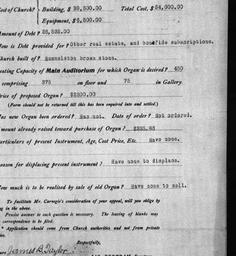 Cost of Church? Building, $ 28,500.00 Total Cost, $34,000.00
Equipment, $5,500.00
Amount of Debt? $8,525.00
How is Debt provided for? Other real estate, and bonafide subscriptions.
Church built of? Hummelstown brown stone.
Seating Capacity of Main Auditorium for which Organ is desired? 450
comprising 375 on floor and 75 in Gallery.
Price of proposed Organ?
(Form should not be returned till this has been enquired into and settled.)
Has new Organ been ordered? Has not. Date of order? Not ordered.
Amount already raised toward purchase of Organ?
Particulars of present Instrument, Age, Cost Price, Etc. Have none.
Reason for displacing present instrument? Have none to displace.
How much is to be realized by sale of old Organ? Have none to sell.
To facilitate Mr. Carnegie's consideration of your appeal, will you oblige by
in the above.
Precise answer to each question is necessary. The leaving of blanks may
correspondence to be filed.
Application should come from Church authorities and not from private
Respectfully,
James B. Taylor